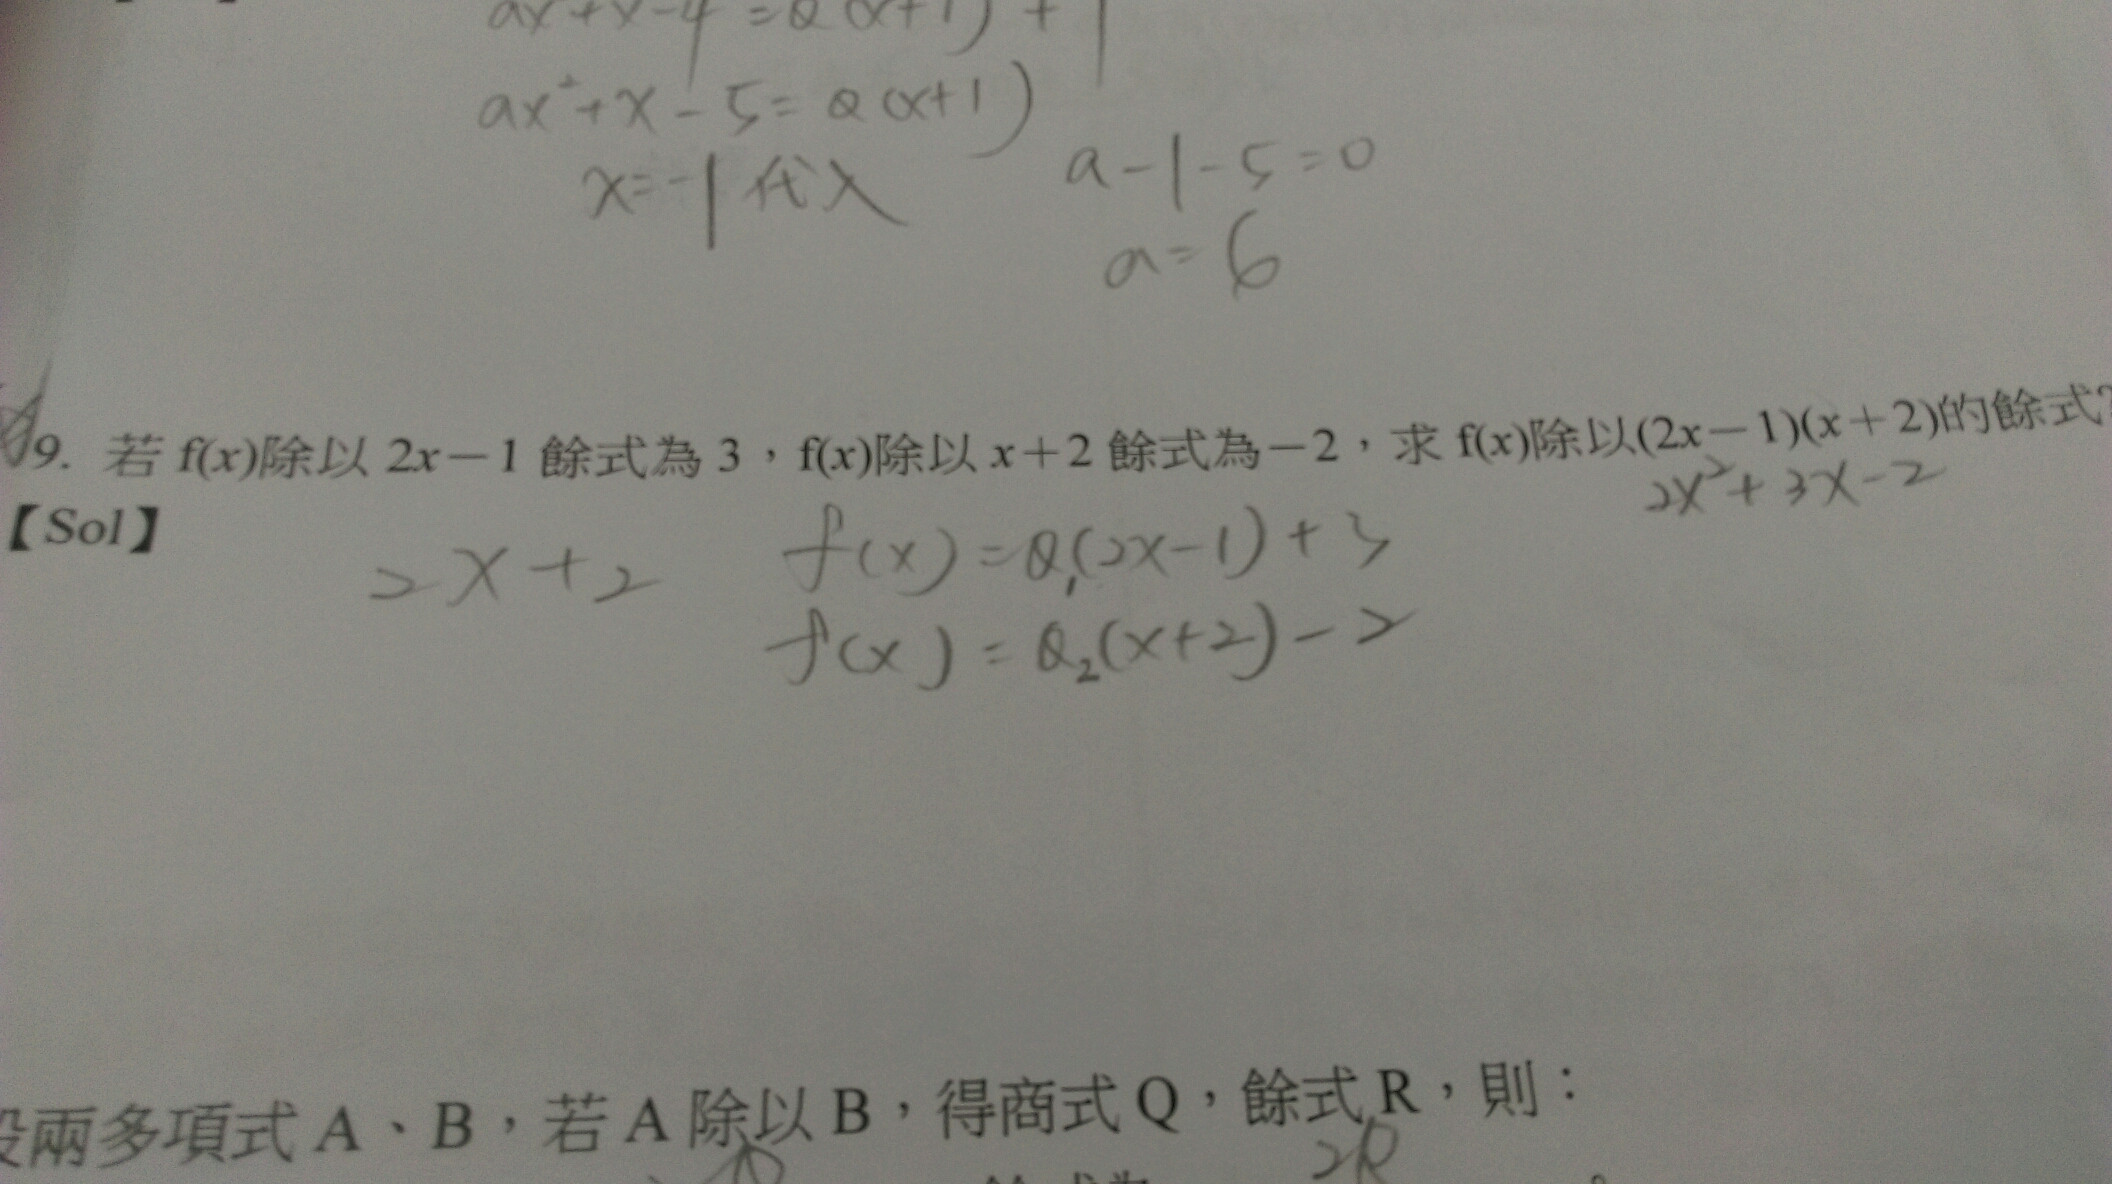 ax²+x-4=Q(x+1)+1
ax²+x-5=Q(x+1)
x=-1代入
a-1-5=0
a=6
9. 若 f(x)除以 2x－1 餘式為 3，f(x)除以 x＋2 餘式為－2，求 f(x)除以(2x－1)(x＋2)的餘式?
2x²+3x-2
【Sol】
2x+2
f(x)=Q₁(2x-1)+3
f(x)=Q₂(x+2)-2
兩多項式 A、B，若 A 除以 B，得商式 Q，餘式 R，則：
2R